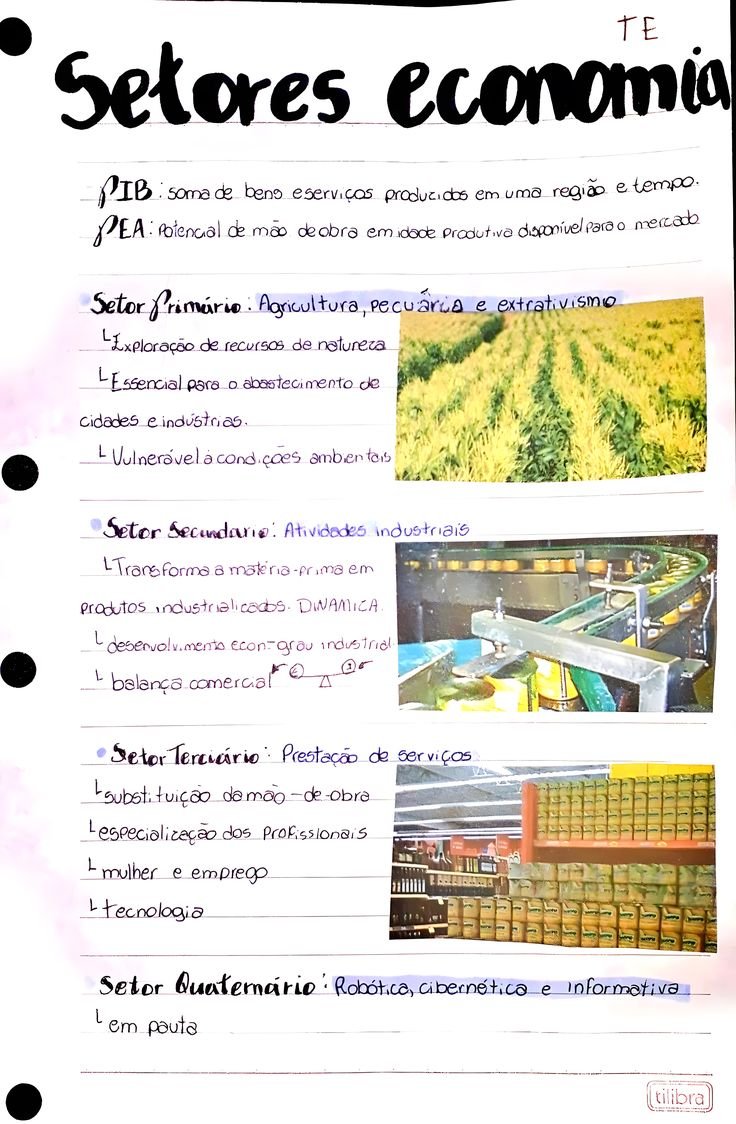 TE
Setores economia
PIB: soma de bens e serviços produzidos em uma região e tempo.
PEA: Potencial de mão de obra em idade produtiva disponível para o mercado
Setor Primário: Agricultura, pecuária e extrativismo
Exploração de recursos de natureza
Essencial para o abastecimento de
cidades e indústrias.
Vulnerável à condições ambientais
Setor Secundário: Atividades industriais
Transforma a matéria-prima em
produtos industrializados. DINAMICA.
desenvolvimento econ-grau industrial
balança comercial
Setor Terciário: Prestação de serviços
substituição da mão-de-obra
especialização dos profissionais
mulher e emprego
tecnologia
Setor Quaternário: Robótica, cibernética e informativa
em pauta
tilibra